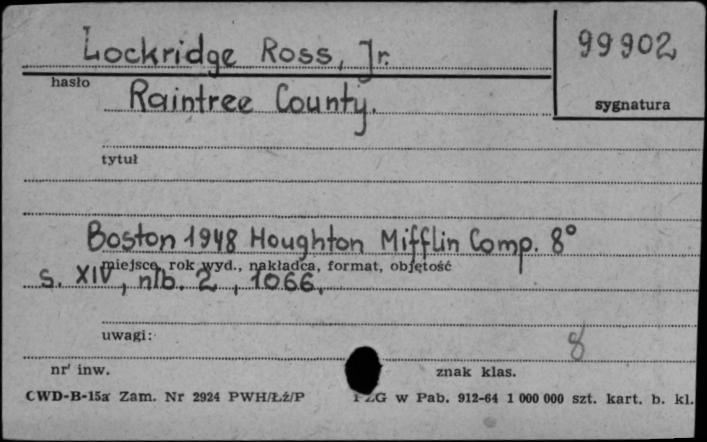 Lockridge Ross, Jr.
99902
hasło
sygnatura
Raintree County.
tytuł
Boston 1948 Houghton Mifflin Comp. 8°
miejsce, rok wyd., nakładca, format, objętość
s. XIV, nlb. 2, 1066.
uwagi:
8
nr inw.
znak klas.
CWD-B-15a Zam. Nr 2924 PWH/Łż/P
PZG w Pab. 912-64 1 000 000 szt. kart. b. kl.